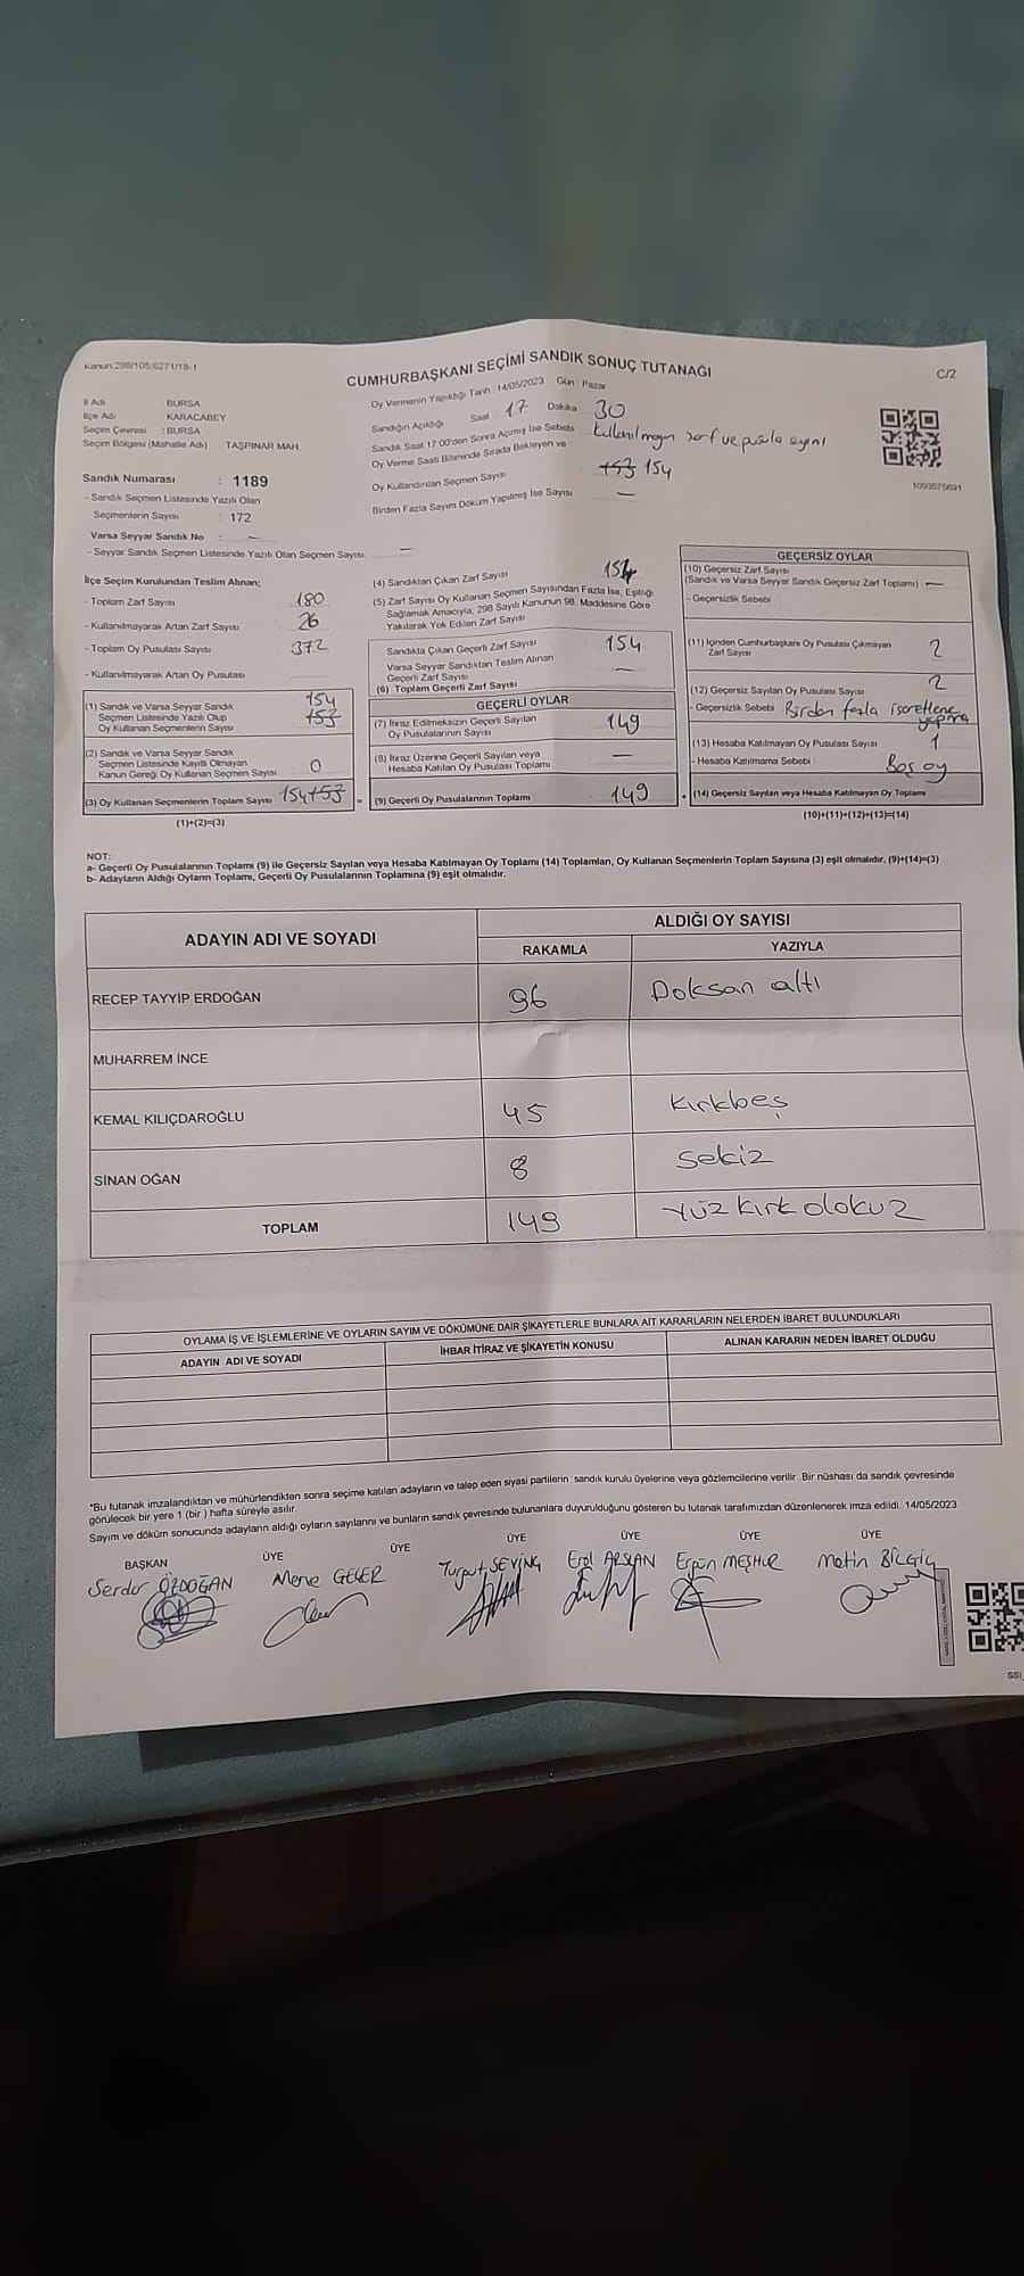 Kanun:298/105;6271/18-1
CUMHURBAŞKANI SEÇİMİ SANDIK SONUÇ TUTANAĞI
C/2
İl Adı BURSA
İlçe Adı KARACABEY
Seçim Çevresi : BURSA
Seçim Bölgesi (Mahalle Adı) TAŞPINAR MAH.
Oy Vermenin Yapıldığı Tarih : 14/05/2023 Gün : Pazar
Sandığın Açıldığı Saat 17 Dakika 30
Sandık Saat 17:00'den Sonra Açılmış İse Sebebi Kullanılmayan zarf ve pusula sayını
Oy Verme Saati Bitiminde Sırada Bekleyen ve
Oy Kullandırılan Seçmen Sayısı 153 154
Birden Fazla Sayım Döküm Yapılmış İse Sayısı —
Sandık Numarası : 1189
- Sandık Seçmen Listesinde Yazılı Olan
Seçmenlerin Sayısı : 172
Varsa Seyyar Sandık No : —
- Seyyar Sandık Seçmen Listesinde Yazılı Olan Seçmen Sayısı —
İlçe Seçim Kurulundan Teslim Alınan;
- Toplam Zarf Sayısı 180
- Kullanılmayarak Artan Zarf Sayısı 26
- Toplam Oy Pusulası Sayısı 372
- Kullanılmayarak Artan Oy Pusulası
(1) Sandık ve Varsa Seyyar Sandık
Seçmen Listesinde Yazılı Olup
Oy Kullanan Seçmenlerin Sayısı
154
153
(2) Sandık ve Varsa Seyyar Sandık
Seçmen Listesinde Kayıtlı Olmayan
Kanun Gereği Oy Kullanan Seçmen Sayısı
0
(3) Oy Kullanan Seçmenlerin Toplam Sayısı 154 153
(1)+(2)=(3)
(4) Sandıktan Çıkan Zarf Sayısı 154
(5) Zarf Sayısı Oy Kullanan Seçmen Sayısından Fazla İse, Eşitliği
Sağlamak Amacıyla, 298 Sayılı Kanunun 98. Maddesine Göre
Yakılarak Yok Edilen Zarf Sayısı
Sandıkta Çıkan Geçerli Zarf Sayısı 154
Varsa Seyyar Sandıktan Teslim Alınan
Geçerli Zarf Sayısı —
(6) Toplam Geçerli Zarf Sayısı
GEÇERLİ OYLAR
(7) İtiraz Edilmeksizin Geçerli Sayılan
Oy Pusulalarının Sayısı 149
(8) İtiraz Üzerine Geçerli Sayılan veya
Hesaba Katılan Oy Pusulası Toplamı —
(9) Geçerli Oy Pusulalarının Toplamı 149
GEÇERSİZ OYLAR
(10) Geçersiz Zarf Sayısı
(Sandık ve Varsa Seyyar Sandık Geçersiz Zarf Toplamı) —
- Geçersizlik Sebebi
(11) İçinden Cumhurbaşkanı Oy Pusulası Çıkmayan
Zarf Sayısı 2
(12) Geçersiz Sayılan Oy Pusulası Sayısı 2
- Geçersizlik Sebebi Birden fazla işaretleme
yapma
(13) Hesaba Katılmayan Oy Pusulası Sayısı 1
- Hesaba Katılmama Sebebi Boş oy
(14) Geçersiz Sayılan veya Hesaba Katılmayan Oy Toplamı
(10)+(11)+(12)+(13)=(14)
NOT:
a- Geçerli Oy Pusulalarının Toplamı (9) ile Geçersiz Sayılan veya Hesaba Katılmayan Oy Toplamı (14) Toplamları, Oy Kullanan Seçmenlerin Toplam Sayısına (3) eşit olmalıdır. (9)+(14)=(3)
b- Adayların Aldığı Oyların Toplamı, Geçerli Oy Pusulalarının Toplamına (9) eşit olmalıdır.
ADAYIN ADI VE SOYADI
ALDIĞI OY SAYISI
RAKAMLA YAZIYLA
RECEP TAYYİP ERDOĞAN 96 Doksan altı
MUHARREM İNCE
KEMAL KILIÇDAROĞLU 45 Kırkbeş
SİNAN OĞAN 8 Sekiz
TOPLAM 149 Yüz kırk dokuz
OYLAMA İŞ VE İŞLEMLERİNE VE OYLARIN SAYIM VE DÖKÜMÜNE DAİR ŞİKAYETLERLE BUNLARA AİT KARARLARIN NELERDEN İBARET BULUNDUKLARI
ADAYIN ADI VE SOYADI İHBAR İTİRAZ VE ŞİKAYETİN KONUSU ALINAN KARARIN NEDEN İBARET OLDUĞU
*Bu tutanak imzalandıktan ve mühürlendikten sonra seçime katılan adayların ve talep eden siyasi partilerin sandık kurulu üyelerine veya gözlemcilerine verilir. Bir nüshası da sandık çevresinde
görülecek bir yere 1 (bir) hafta süreyle asılır.
Sayım ve döküm sonucunda adayların aldığı oyların sayılarını ve bunların sandık çevresinde bulunanlara duyurulduğunu gösteren bu tutanak tarafımızdan düzenlenerek imza edildi. 14/05/2023
BAŞKAN ÜYE ÜYE ÜYE ÜYE ÜYE ÜYE
Serdar ÖZDOĞAN Turgut SEVİNÇ Erol ARSLAN Ergün MEŞHUR Metin BİLGİÇ